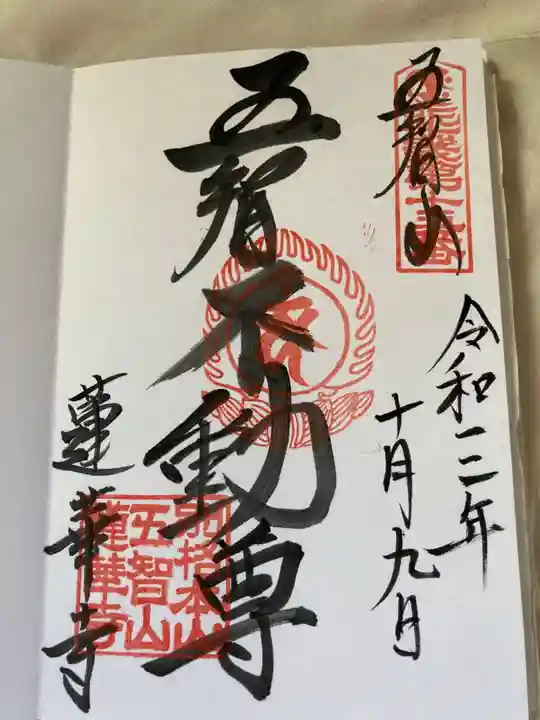 五智山
令和三年
十月九日
五智不動尊
蓮華寺
別格本山
五智山
蓮華寺